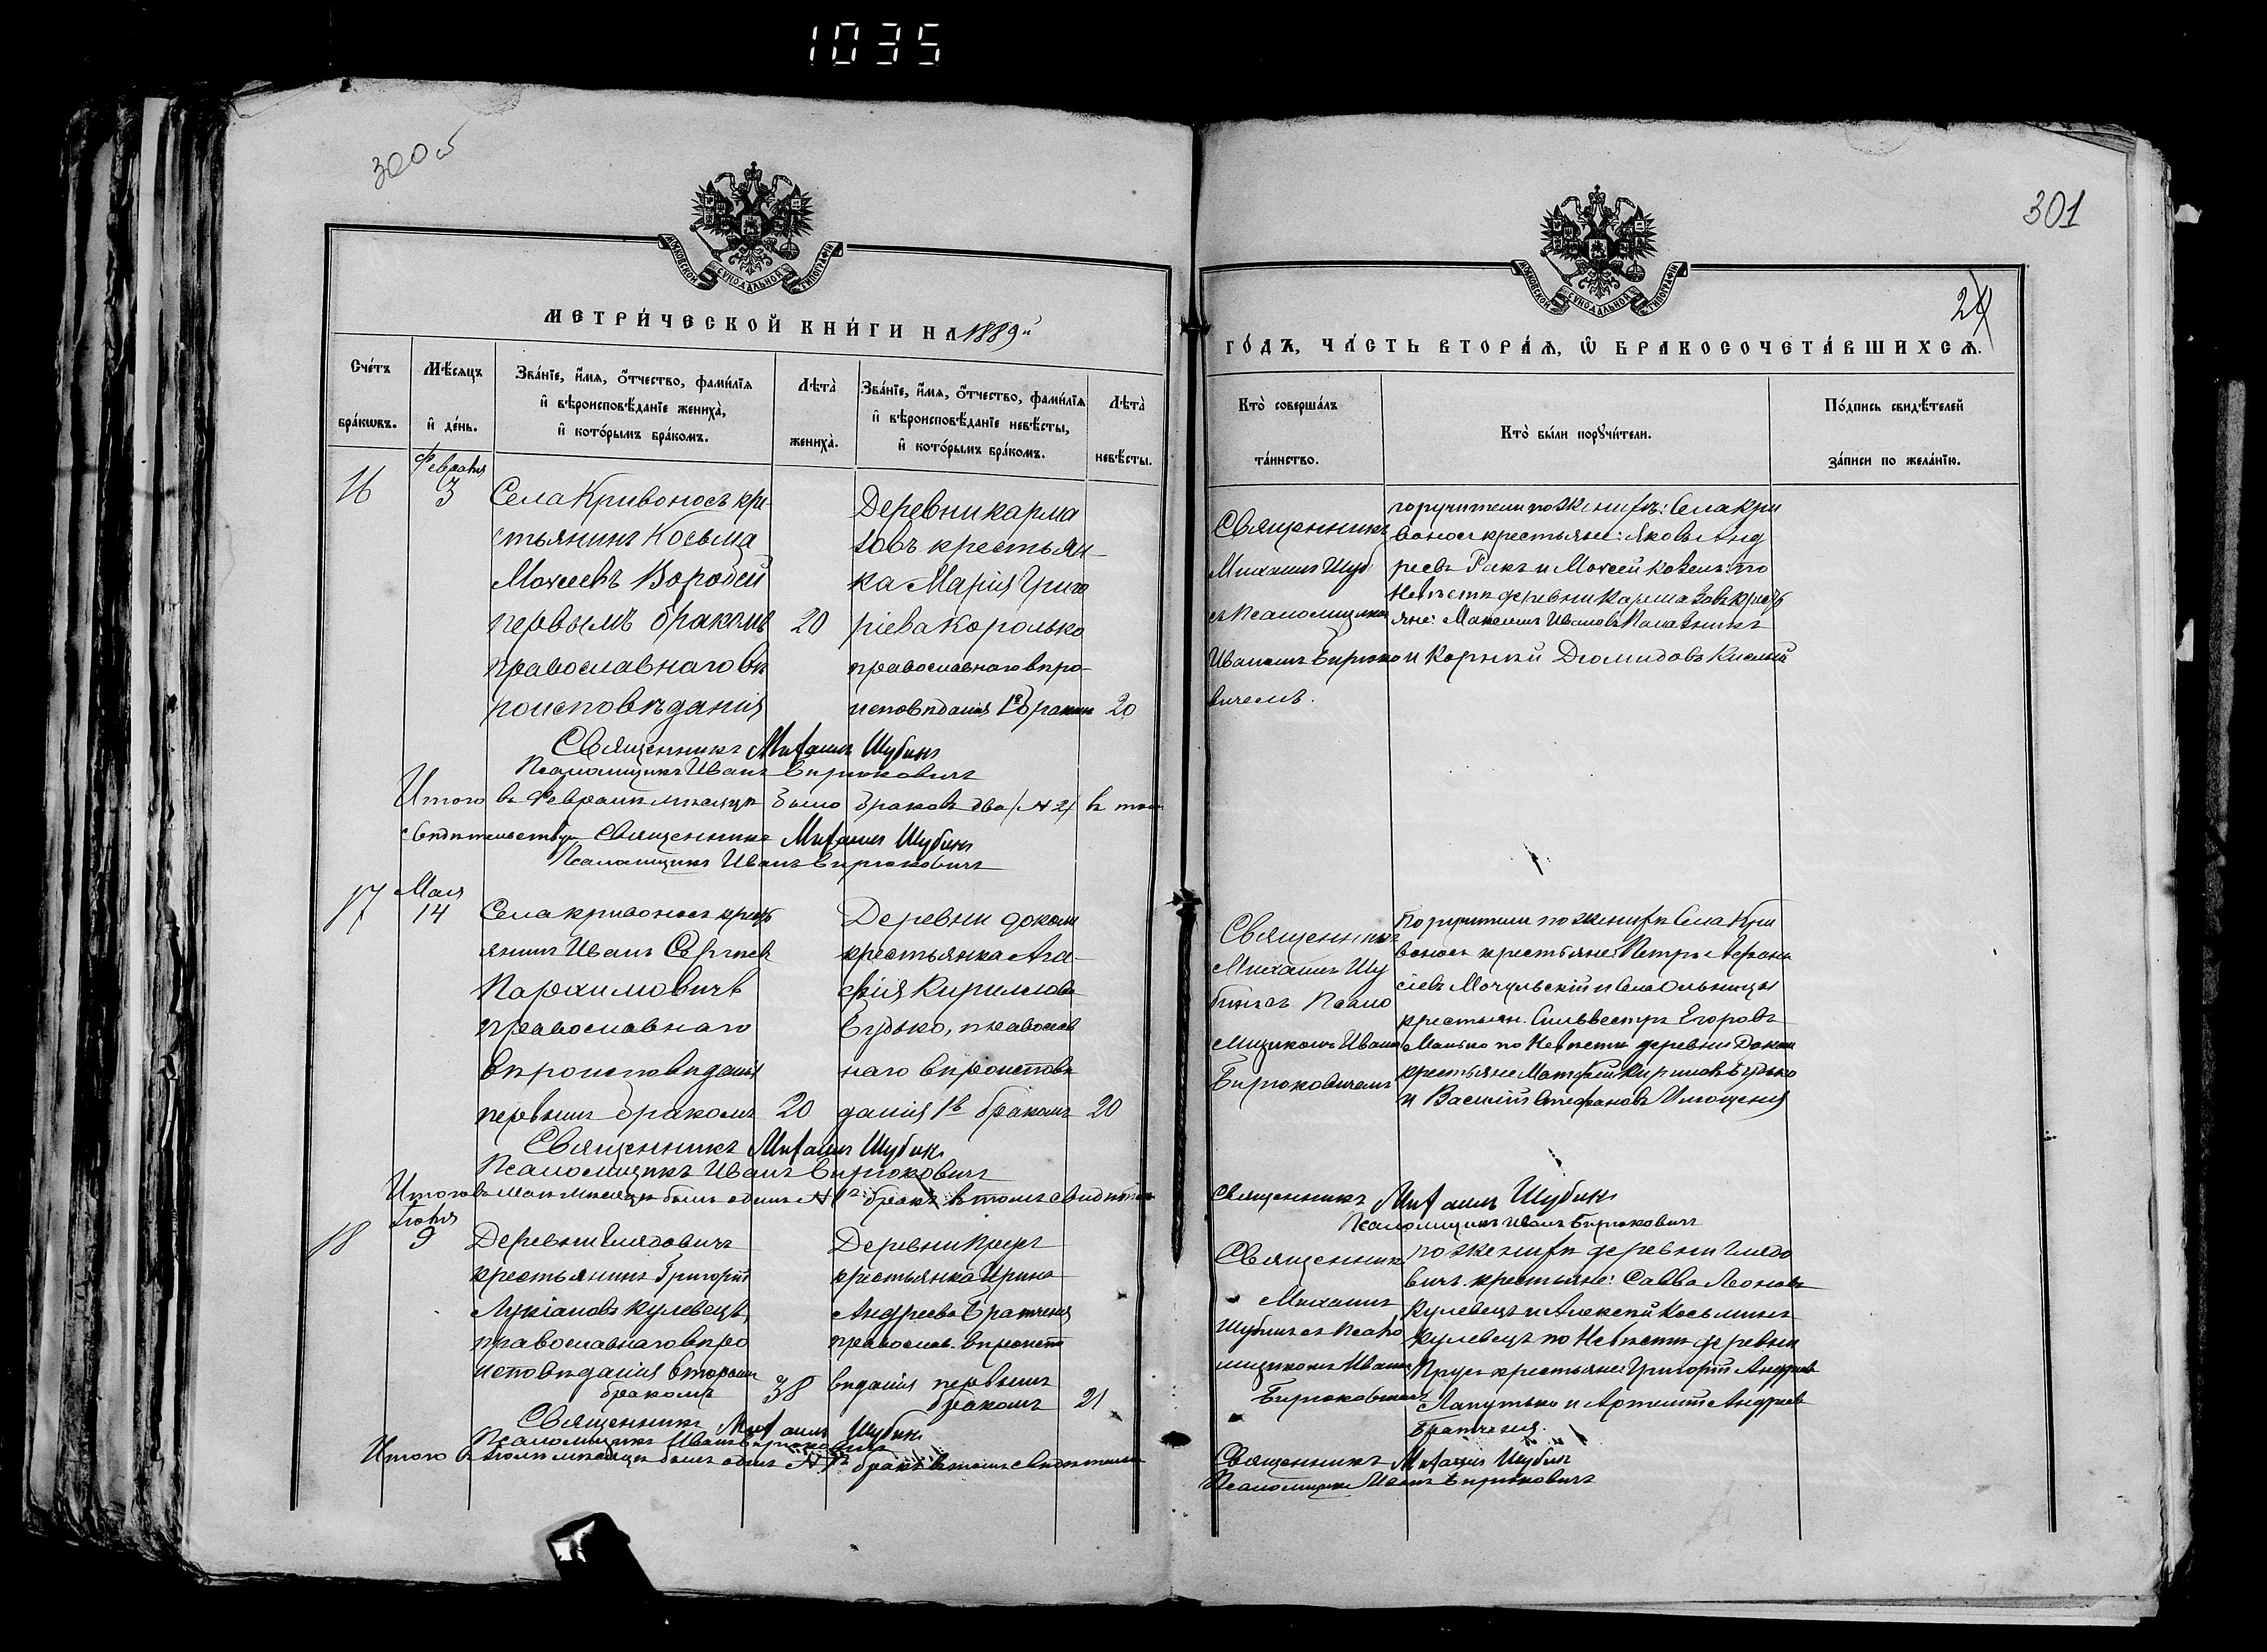 1035
300об
301
24
МОСКОВСКОЙ СУНОДАЛЬНОЙ ТИПОГРАФІИ
МОСКОВСКОЙ СУНОДАЛЬНОЙ ТИПОГРАФІИ
МЕТРИ́ЧЕСКОЙ КНИ́ГИ НА 1889й
Сче́тъ бра́кѡвъ.
Мѣ́сяцъ и҆ де́нь.
Зва́нїе, и҆́мѧ, ѻ҆́тчество, фами́лїѧ
и҆ вѣроисповѣ́данїе жениха̀,
и҆ кото́рымъ бра́комъ.
Лѣта̀ жениха̀.
Зва́нїе, и҆́мѧ, ѻ҆́тчество, фами́лїѧ
и҆ вѣроисповѣ́данїе невѣ́сты,
и҆ кото́рымъ бра́комъ.
Лѣта̀ невѣ́сты.
ГО́ДЪ, ЧА́СТЬ ВТОРА́Ѧ, Ѡ҆ БРАКОСОЧЕТА́ВШИХСѦ.
Кто̀ соверша́лъ
та́инство.
Кто̀ бы́ли порꙋчи́тели.
По́дпись свидѣ́телей
за́писи по жела́нїю.
16
Февраля
3
Села Кривоносъ кре-
стьянинъ Косьма
Моисеевъ Воробей
первымъ бракомъ
православнаго вѣ
роисповѣданія
20
Деревни Карма
зовъ крестьян-
ка Марія Григо
ріева Королько
православнаго вѣро-
исповѣданія 1º бракомъ
20
Священникъ
Михаилъ Шуб
съ Псаломщикомъ
Иваномъ Бирюко
вичемъ.
поручители по Женихѣ: Села Кри
воносъ крестьяне: Яковъ Анд
реевъ Ракъ и Моисей Козелъ: по
Невѣстѣ деревни Кармазовъ крест
яне: Максимъ Ивановъ
и Корнкій Діомидовъ Кислый
Священникъ Михаилъ Шубинъ
Псаломщикъ Иванъ Бирюковичъ
Итого въ Февралѣ мѣсяцѣ было браковъ два /№ 2/ въ томъ
свидѣтельствуемъ Священникъ Михаилъ Шубинъ
Псаломщикъ Иванъ Бирюковичъ
17
Мая
14
Села Кривоносъ крест
янинъ Иванъ Сергѣевъ
Пархимовичъ
православнаго
вѣроисповѣданія
первымъ бракомъ
20
Деревни Доколи
крестьянка Ага-
фія Кириллова
Будько, православ
наго вѣроисповѣ
данія 1мъ бракомъ
20
Священникъ
Михаилъ Шу
бинъ съ Псало
мщикомъ Ивано
Бирюковичемъ
Поручители по женихѣ Села Кри
воносъ крестьяне: Петръ Афана
сіевъ Мочульскій и Села Ольницы
крестьян. Сильвестръ Егоровъ
Манько по Невѣстѣ деревни Доколь
крестьяне Матфей Кириловъ Будько
и Василій Стефановъ
Священникъ Михаилъ Шубинъ
Псаломщикъ Иванъ Бирюковичъ
Итого въ Маѣ мѣсяцѣ былъ одинъ №1й бракъ въ томъ свидѣтел
Священникъ Михаилъ Шубинъ
Псаломщикъ Иванъ Бирюковичъ
18
9
Деревни Глядовичъ
крестьянинъ Григорій
Лукіановъ Кулевецъ,
православнаго вѣро
исповѣданія вторымъ
бракомъ
38
Деревни Прусъ
крестьянка Ирина
Андреева Братченя
православ. вѣроиспо
вѣданія первымъ
бракомъ
21
Священник
Михаилъ
Шубинъ съ Псало
мщикомъ Ивано
Бирюковичемъ
по женихѣ деревни Глядо
вичъ. крестьяне: Савва Леоновъ
Кулевецъ и Алексѣй Косьминъ
Кулевецъ по Невѣстѣ деревни
Прусъ крестьяне: Григорій Андреевъ
Лапутько и Артемій Андреевъ
Братченя.
Священникъ Михаилъ Шубинъ
Псаломщикъ Иванъ Бирюковичъ
Итого въ мѣсяцѣ былъ одинъ №1й бракъ въ томъ свидѣтельс
Священникъ Михаилъ Шубинъ
Псаломщикъ Иванъ Бирюковичъ